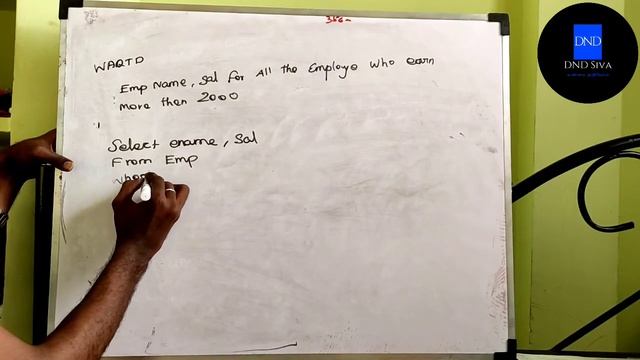 WAQTD
Emp Name, Sal for All the Employe who earn
more then 2000
Select ename, Sal
From Emp
whe
DND
DND SIVA